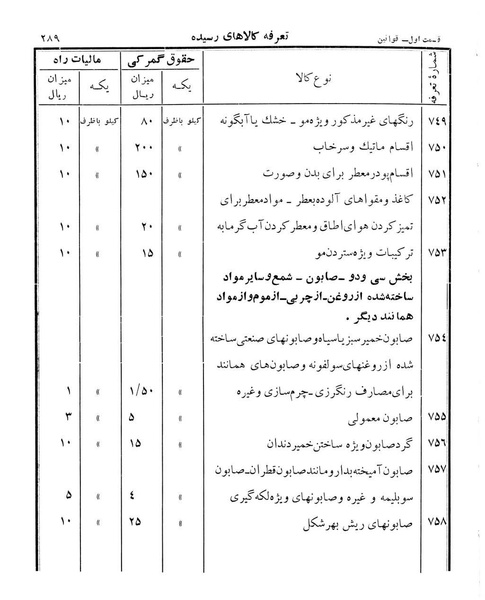 قسمت اول ـ قوانین
تعرفه کالاهای رسیده
۲۸۹
شمارهٔ تعرفه
نوع کالا
حقوق گمرکی
مالیات راه
یکه
میزان ریال
یکه
میزان ریال
۷٤۹ رنگهای غیرمذکور ویژه مو ـ خشك یا آبگونه کیلو باظرف ۸۰ کیلو باظرف ۱۰
۷۵۰ اقسام ماتیك وسرخاب » ۲۰۰ » ۱۰
۷۵۱ اقسام پودر معطر برای بدن و صورت » ۱۵۰ » ۱۰
۷۵۲ کاغذ و مقواهای آلوده بعطر ـ مواد معطر برای
تمیز کردن هوای اطاق و معطر کردن آب گرمابه » ۲۰ » ۱۰
۷۵۳ ترکیبات ویژه ستردن مو » ۱۵ » ۱۰
بخش سی ودو ـ صابون ـ شمع وسایر مواد
ساخته شده از روغن ـ از چربی ـ از موم و از مواد
همانند دیگر .
۷۵٤ صابون خمیر سبز یا سیاه و صابونهای صنعتی ساخته
شده از روغنهای سولفونه و صابون‌های همانند
برای مصارف رنگرزی ـ چرم سازی و غیره » ۱/۵۰ » ۱
۷۵۵ صابون معمولی » ۵ » ۳
۷۵۶ گرد صابون ویژه ساختن خمیر دندان » ۱۵ » ۱۰
۷۵۷ صابون آمیخته بدارو مانند صابون قطران ـ صابون
سوبلیمه و غیره و صابونهای ویژه لکه گیری » ٤ » ۵
۷۵۸ صابونهای ریش بهر شکل » ۲۵ » ۱۰